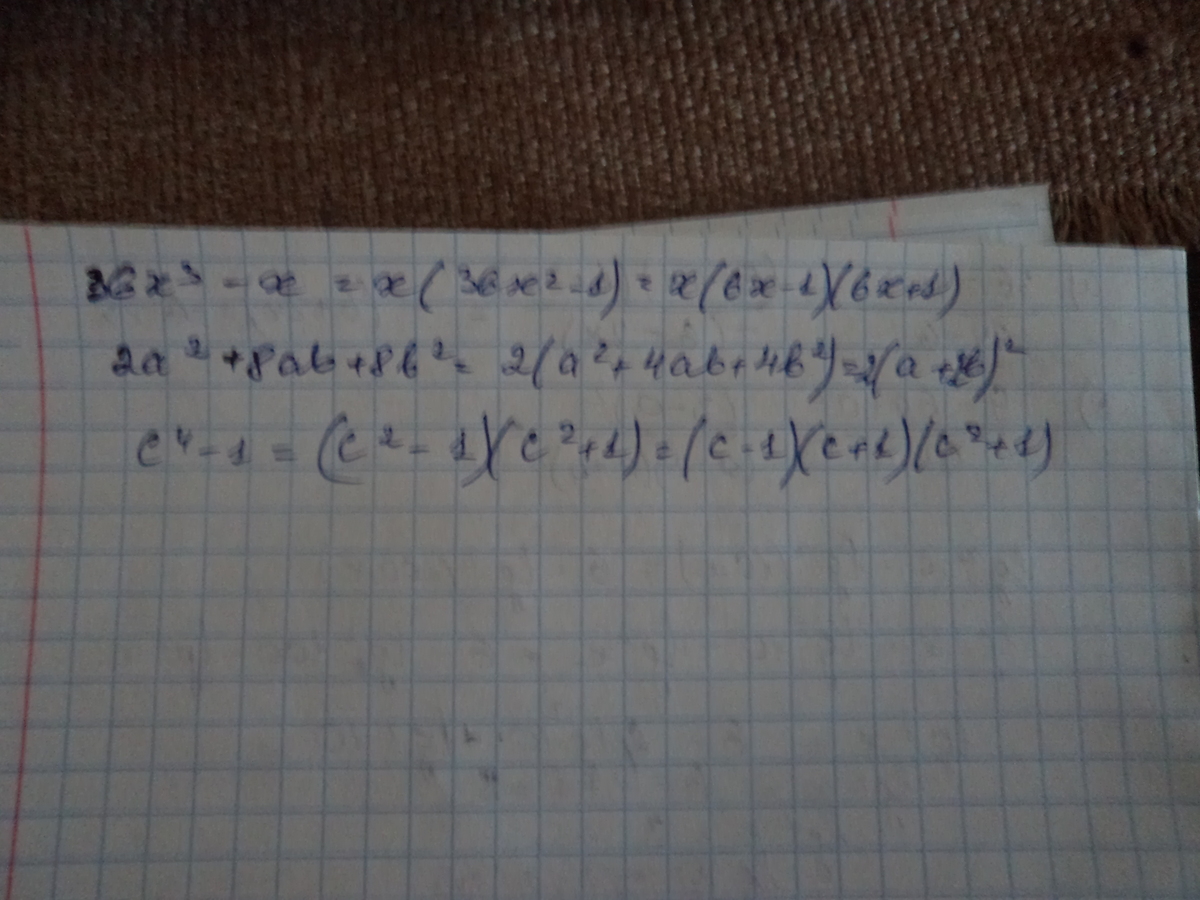 36x³ - x = x(36x² - 1) = x(6x-1)(6x+1)
2a² + 8ab + 8b² = 2(a² + 4ab + 4b²) = 2(a + 2b)²
c⁴ - 1 = (c² - 1)(c² + 1) = (c - 1)(c + 1)(c² + 1)